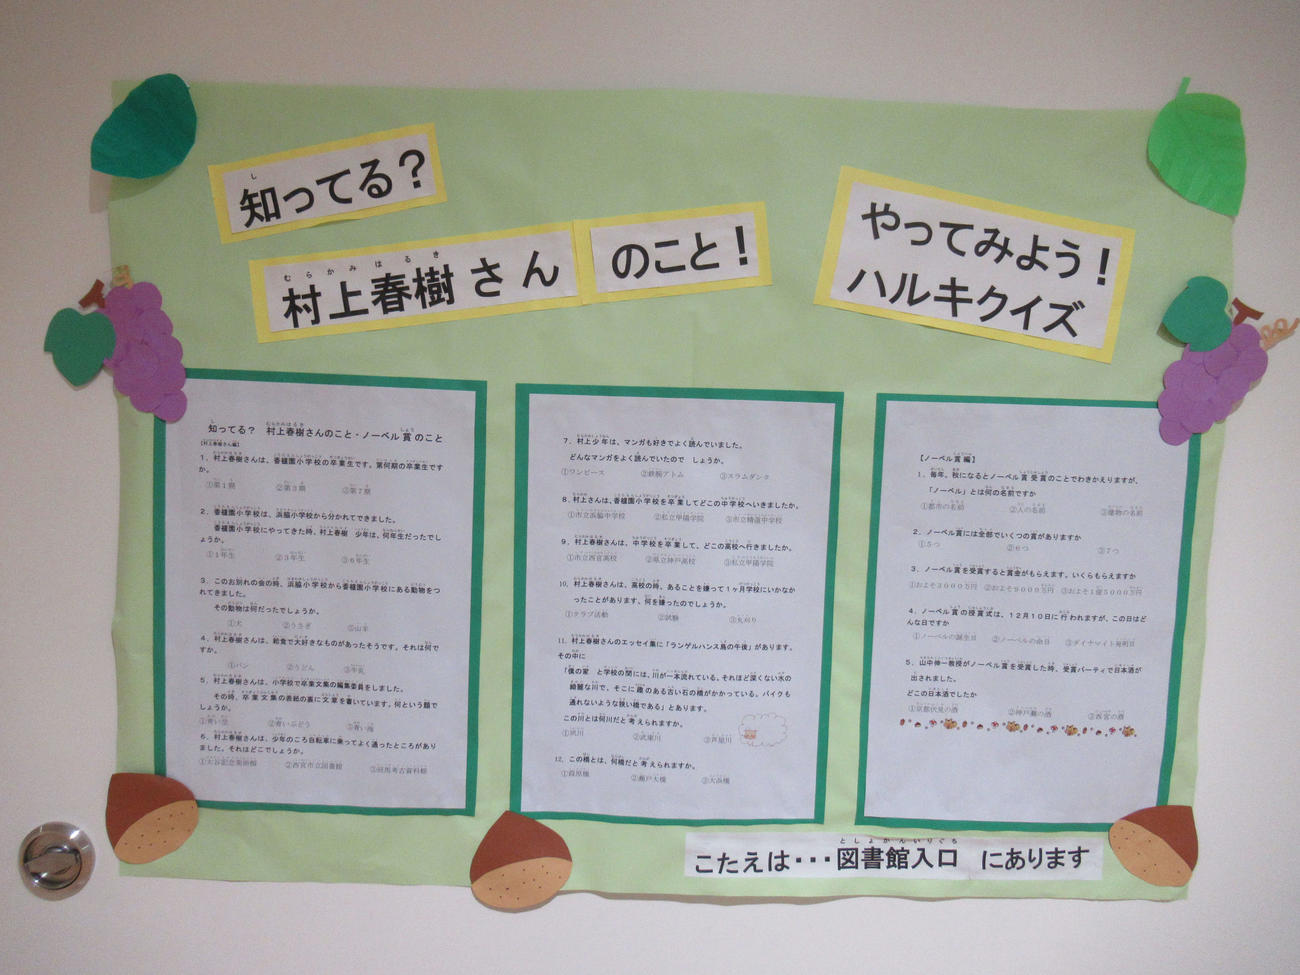 知ってる?
村上春樹さん のこと!
やってみよう!
ハルキクイズ
知ってる? 村上春樹さんのこと・ノーベル賞のこと
【村上春樹さん編】
1.村上春樹さんは、香櫨園小学校の卒業生です。第何期の卒業生です
か。
①第1期 ②第3期 ③第7期
2.香櫨園小学校は、浜脇小学校から分かれてできました。
香櫨園小学校にやってきた時、村上春樹 少年は、何年生だったでし
ょうか。
①1年生 ②3年生 ③6年生
3.このお別れの会の時、浜脇小学校から香櫨園小学校にある動物をつ
れてきました。
その動物は何だったでしょうか。
①犬 ②うさぎ ③山羊
4.村上春樹さんは、給食で大好きなものがあったそうです。それは何で
すか。
①パン ②うどん ③牛乳
5.村上春樹さんは、小学校で卒業文集の編集委員をしました。
その時、卒業文集の表紙の裏に文章を書いています。何という題で
しょうか。
①青い空 ②青いぶどう ③青い海
6.村上春樹さんは、少年のころ自転車に乗ってよく通ったところがあり
ました。それはどこでしょうか。
①大谷記念美術館 ②西宮市立図書館 ③辰馬考古資料館
7.村上少年は、マンガも好きでよく読んでいました。
どんなマンガをよく読んでいたので しょうか。
①ワンピース ②鉄腕アトム ③スラムダンク
8.村上さんは、香櫨園小学校を卒業してどこの中学校へいきましたか。
①市立浜脇中学校 ②私立甲陽学院 ③市立精道中学校
9.村上春樹さんは、中学校を卒業して、どこの高校へ行きましたか。
①市立西宮高校 ②県立神戸高校 ③私立甲陽学院
10.村上春樹さんは、高校の時、あることを嫌って1ヶ月学校にいかなか
ったことがあります、何を嫌ったのでしょうか。
①クラブ活動 ②試験 ③丸刈り
11.村上春樹さんのエッセイ集に「ランゲルハンス島の午後」があります。
その中に
「僕の家 と学校の間には、川が一本流れている。それほど深くない水の
綺麗な川で、そこに趣のある古い石の橋がかかっている。バイクも
通れないような狭い橋である」とあります。
この川とは何川だと考えられますか。
①夙川 ②武庫川 ③芦屋川
12.この橋とは、何橋だと考えられますか。
①葭原橋 ②瀬戸大橋 ③大浜橋
【ノーベル賞編】
1.毎年、秋になるとノーベル賞受賞のことでわきかえりますが、
「ノーベル」とは何の名前ですか
①都市の名前 ②人の名前 ③建物の名前
2.ノーベル賞には全部でいくつの賞がありますか
①5つ ②6つ ③7つ
3.ノーベル賞を受賞すると賞金がもらえます。いくらもらえますか
①およそ3000万円 ②およそ9000万円 ③およそ1億5000万円
4.ノーベル賞の授賞式は、12月10日に行われますが、この日はど
んな日ですか
①ノーベルの誕生日 ②ノーベルの命日 ③ダイナマイト発明日
5.山中伸一教授がノーベル賞を受賞した時、受賞パーティで日本酒が
出されました。
どこの日本酒でしたか
①京都伏見の酒 ②神戸灘の酒 ③西宮の酒
こたえは・・・図書館入口 にあります